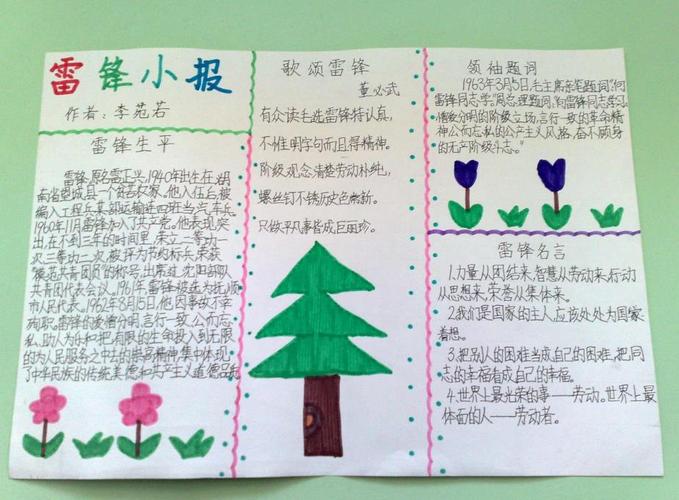 雷锋小报
作者：李苑若
雷锋生平
雷锋,原名雷正兴,1940年出生在湖
南省望城县一个贫农家。他入伍后,被
编入工程兵某部运输连四班当汽车兵。
1960年11月雷锋加入了共产党。他表现突
出,在不到三年的时间里,荣立二等功一
次,三等功二次,被评为节约标兵,荣获
"模范共青团员"的称号,出席过沈阳部队
共青团代表会议。1961年雷锋被选为抚顺
市人民代表。1962年8月15日,他因事故不幸
殉职。雷锋的爱憎分明,言行一致,公而忘
私,助人为乐和把有限的生命投入到无限
的为人民服务之中去的崇高精神集中体现
了中华民族的传统美德和共产主义道德品
歌颂雷锋
董必武
有众读毛选雷锋特认真,
不惟明字句而且得精神。
阶级观念清楚劳动朴纯,
螺丝钉不锈历史色常新。
只做平凡事皆成巨丽珍。
领袖题词
1963年3月5日,毛主席亲笔题词"向
雷锋同志学习"周总理题词"向雷锋同志学习
憎爱分明的阶级立场,言行一致的革命精
神公而忘私的共产主义风格,奋不顾身
的无产阶级斗志。"
雷锋名言
1.力量从团结来,智慧从劳动来,行动
从思想来,荣誉从集体来。
2.我们是国家的主人,应该处处为国家
着想。
3.把别人的困难当成自己的困难,把同
志的幸福看成自己的幸福。
4.世界上最光荣的事——劳动。世界上最
体面的人——劳动者。